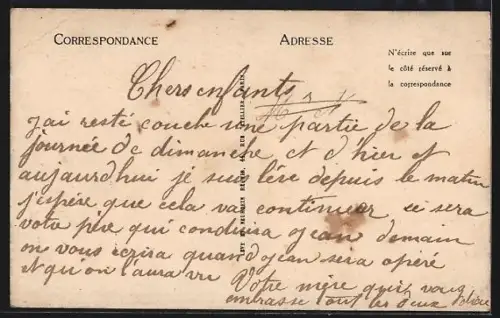 CORRESPONDANCE
ADRESSE
N'écrire que sur
le côté réservé à
la correspondance
Chers enfants
j'ai resté couche une partie de la
journée de dimanche et d'hier et
aujourd'hui je suis lére depuis le matin
j'espère que cela va continuer ce sera
votre père qui condura jean demain
on vous écrira quand jean sera opéré
et qu on l'aura vu Votre mère qui vous
embrasse tout les deux